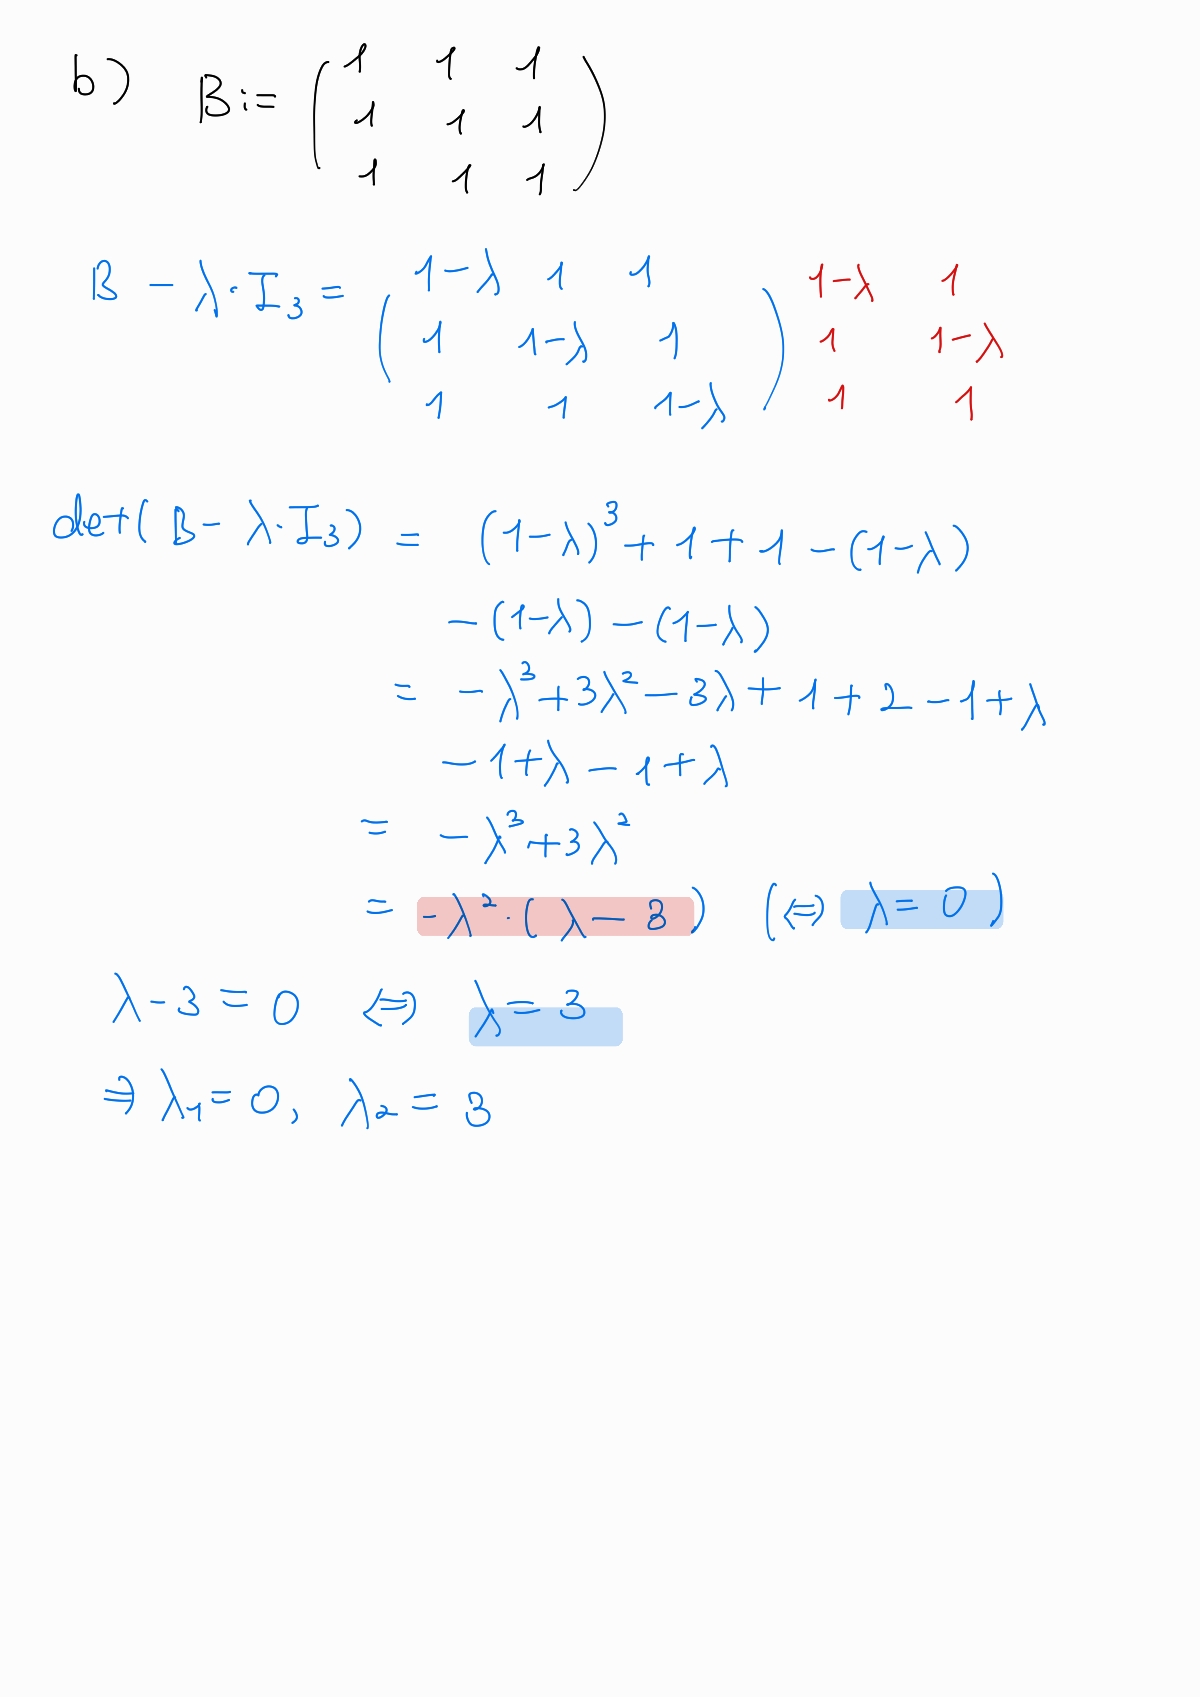 b) B := ( 1 1 1
1 1 1
1 1 1 )
B - λ·I₃ = ( 1-λ 1 1 1-λ 1
1 1-λ 1 1 1-λ
1 1 1-λ ) 1 1
det(B - λ·I₃) = (1-λ)³ + 1 + 1 - (1-λ)
- (1-λ) - (1-λ)
= -λ³ + 3λ² - 3λ + 1 + 2 - 1 + λ
- 1 + λ - 1 + λ
= -λ³ + 3λ²
= -λ²·(λ - 3) (⇔ λ = 0)
λ - 3 = 0 ⇔ λ = 3
⇒ λ₁ = 0, λ₂ = 3